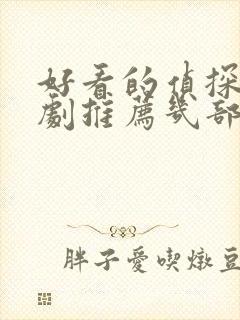 好看的偵探
劇推薦幾部
胖子愛喫燉豆